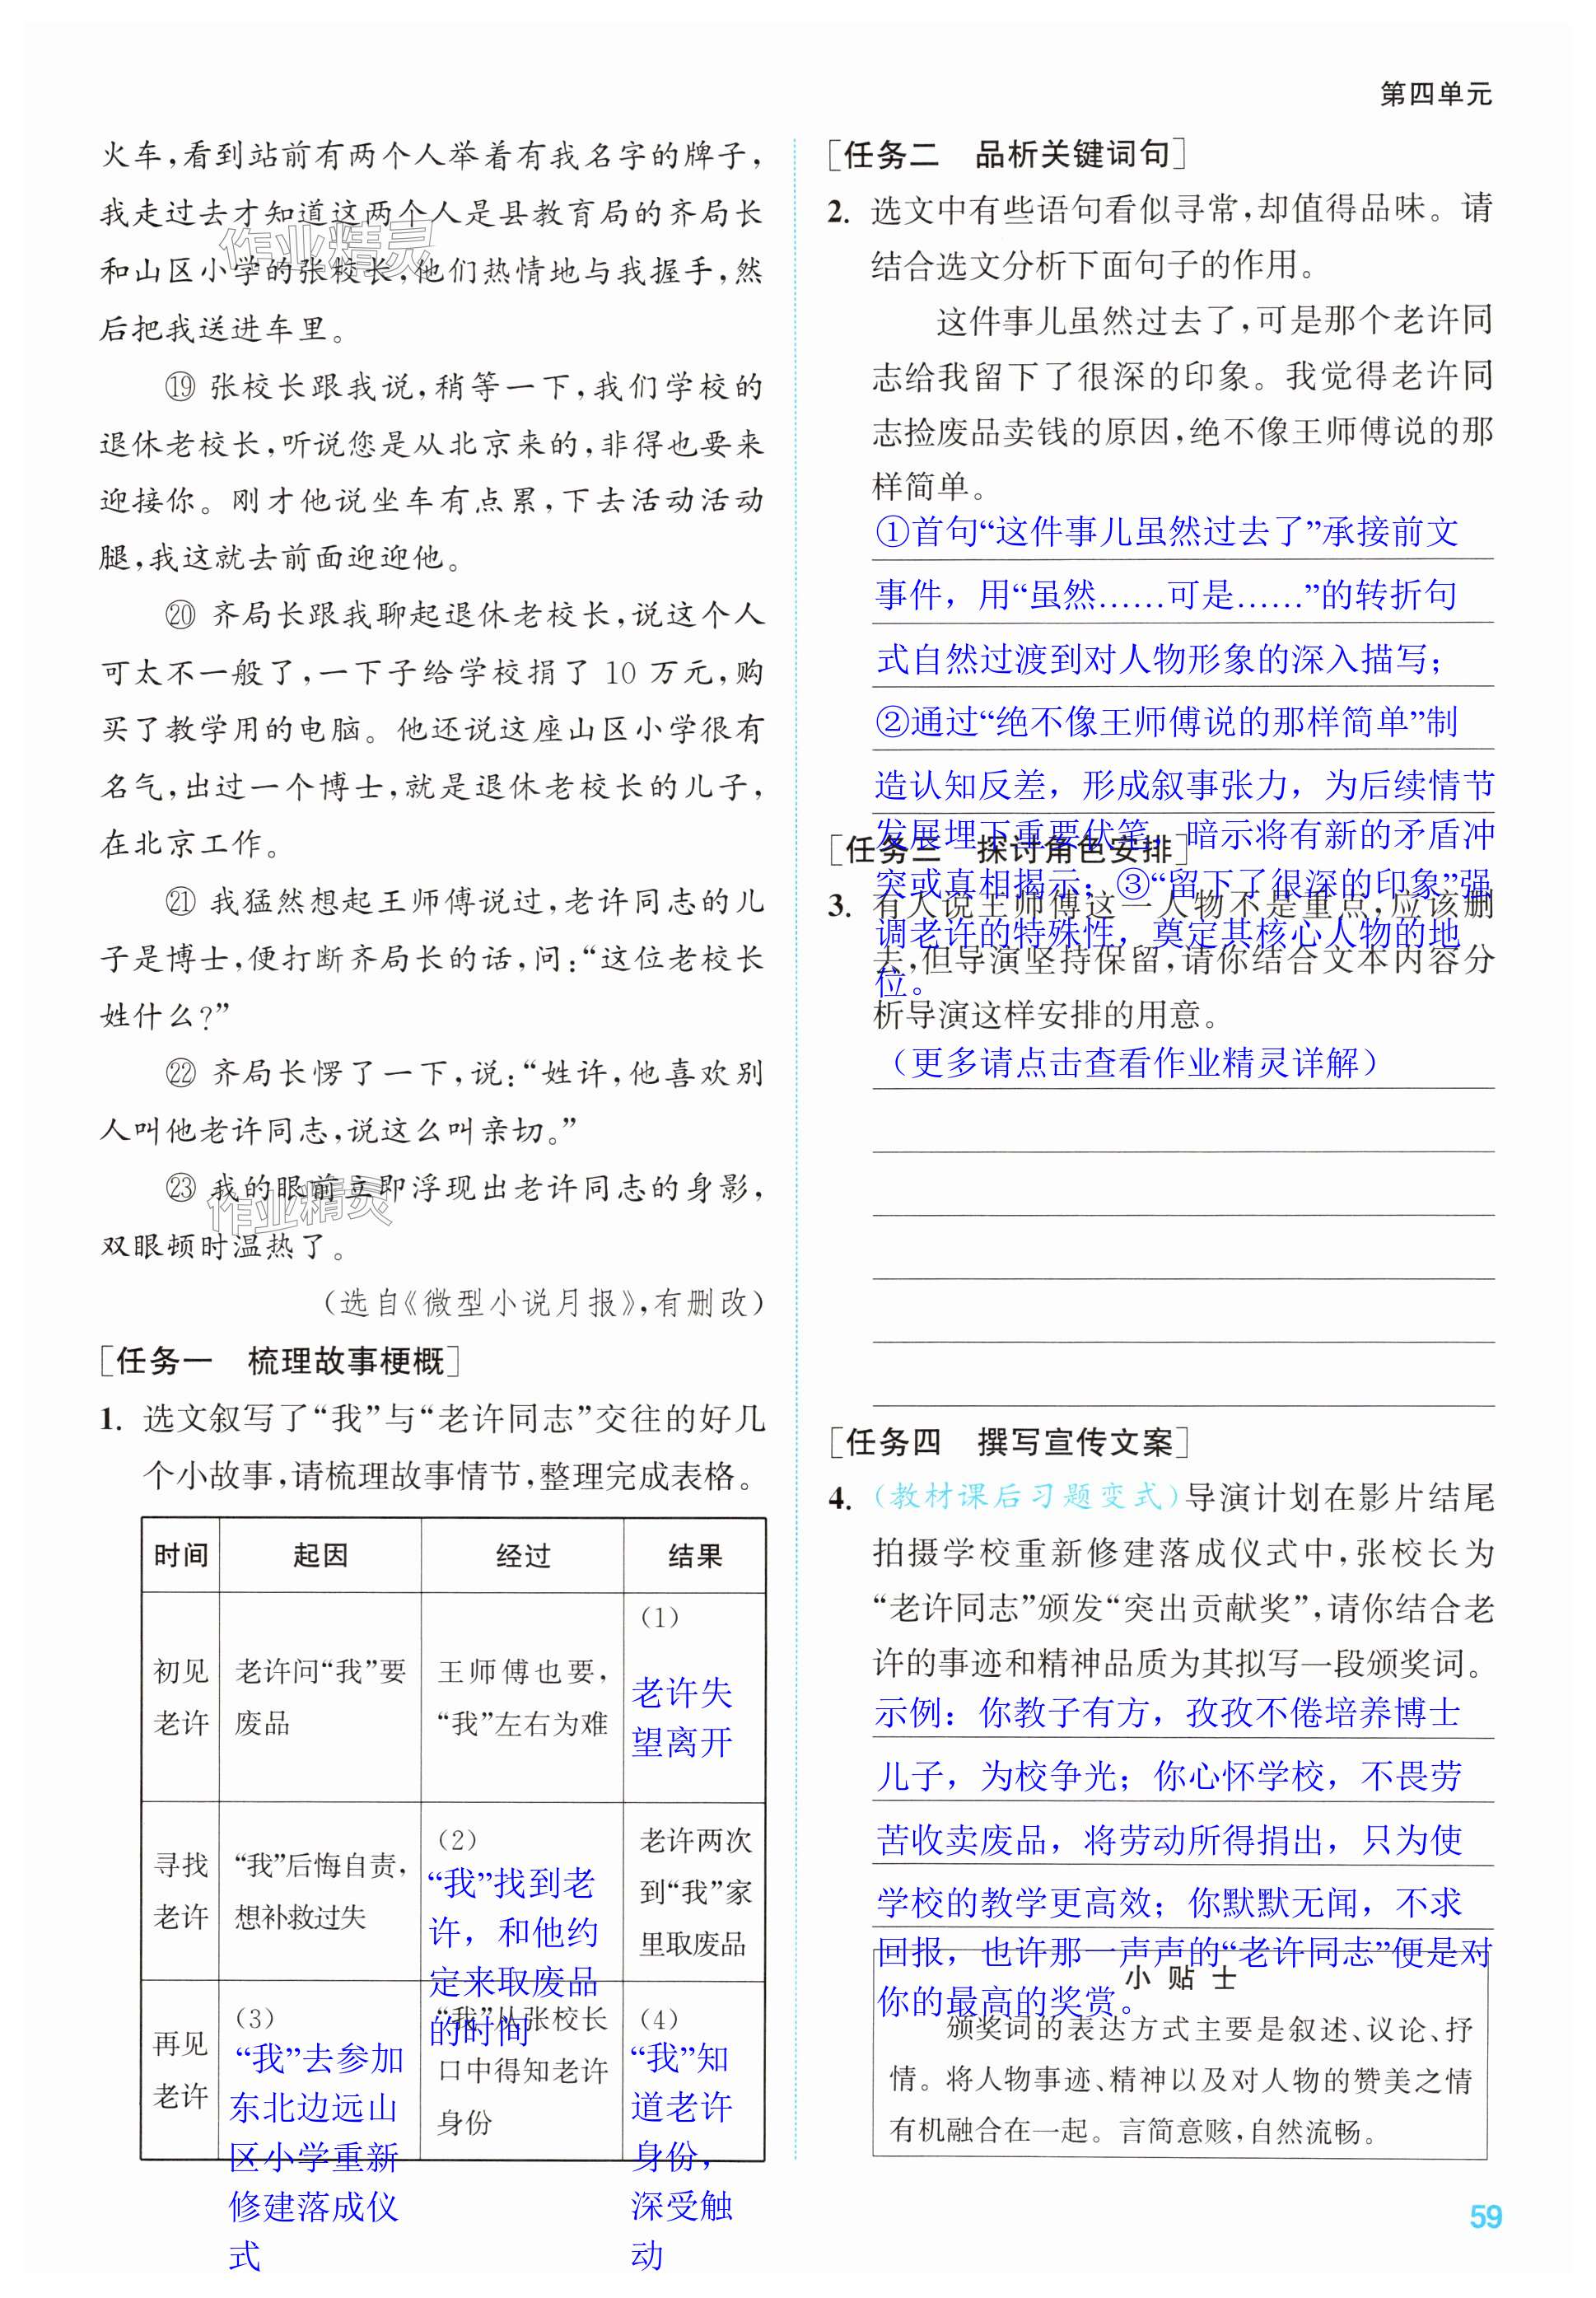 第四单元
火车,看到站前有两个人举着有我名字的牌子,
我走过去才知道这两个人是县教育局的齐局长
和山区小学的张校长,他们热情地与我握手,然
后把我送进车里。
⑲ 张校长跟我说,稍等一下,我们学校的
退休老校长,听说您是从北京来的,非得也要来
迎接你。刚才他说坐车有点累,下去活动活动
腿,我这就去前面迎迎他。
⑳ 齐局长跟我聊起退休老校长,说这个人
可太不一般了,一下子给学校捐了 10 万元,购
买了教学用的电脑。他还说这座山区小学很有
名气,出过一个博士,就是退休老校长的儿子,
在北京工作。
㉑ 我猛然想起王师傅说过,老许同志的儿
子是博士,便打断齐局长的话,问:“这位老校长
姓什么?”
㉒ 齐局长愣了一下,说:“姓许,他喜欢别
人叫他老许同志,说这么叫亲切。”
㉓ 我的眼前立即浮现出老许同志的身影,
双眼顿时温热了。
(选自《微型小说月报》,有删改)
作业精灵
作业精灵
[任务一 梳理故事梗概]
1. 选文叙写了“我”与“老许同志”交往的好几
个小故事,请梳理故事情节,整理完成表格。
时间 起因 经过 结果
初见
老许
老许问“我”要
废品
王师傅也要,
“我”左右为难
(1)
老许失
望离开
寻找
老许
“我”后悔自责,
想补救过失
(2)
“我”找到老
许，和他约
定来取废品
的时间
老许两次
到“我”家
里取废品
再见
老许
(3)
“我”去参加
东北边远山
区小学重新
修建落成仪
式
“我”从张校长
口中得知老许
身份
(4)
“我”知
道老许
身份，
深受触
动
[任务二 品析关键词句]
2. 选文中有些语句看似寻常,却值得品味。请
结合选文分析下面句子的作用。
这件事儿虽然过去了,可是那个老许同
志给我留下了很深的印象。我觉得老许同
志捡废品卖钱的原因,绝不像王师傅说的那
样简单。
①首句“这件事儿虽然过去了”承接前文
事件，用“虽然……可是……”的转折句
式自然过渡到对人物形象的深入描写；
②通过“绝不像王师傅说的那样简单”制
造认知反差，形成叙事张力，为后续情节
发展埋下重要伏笔，暗示将有新的矛盾冲
突或真相揭示；③“留下了很深的印象”强
调老许的特殊性，奠定其核心人物的地
位。
[任务三 探讨角色安排]
3. 有人说王师傅这一人物不是重点,应该删
去,但导演坚持保留,请你结合文本内容分
析导演这样安排的用意。
（更多请点击查看作业精灵详解）
[任务四 撰写宣传文案]
4. (教材课后习题变式)导演计划在影片结尾
拍摄学校重新修建落成仪式中,张校长为
“老许同志”颁发“突出贡献奖”,请你结合老
许的事迹和精神品质为其拟写一段颁奖词。
示例：你教子有方，孜孜不倦培养博士
儿子，为校争光；你心怀学校，不畏劳
苦收卖废品，将劳动所得捐出，只为使
学校的教学更高效；你默默无闻，不求
回报，也许那一声声的“老许同志”便是对
你的最高的奖赏。
小 贴 士
颁奖词的表达方式主要是叙述、议论、抒
情。将人物事迹、精神以及对人物的赞美之情
有机融合在一起。言简意赅,自然流畅。
59